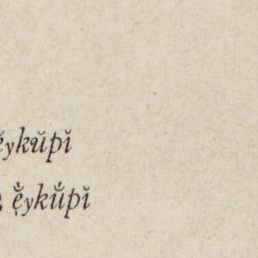 ĕykŭpĭ
ẹ̆́ykŭ́pĭ